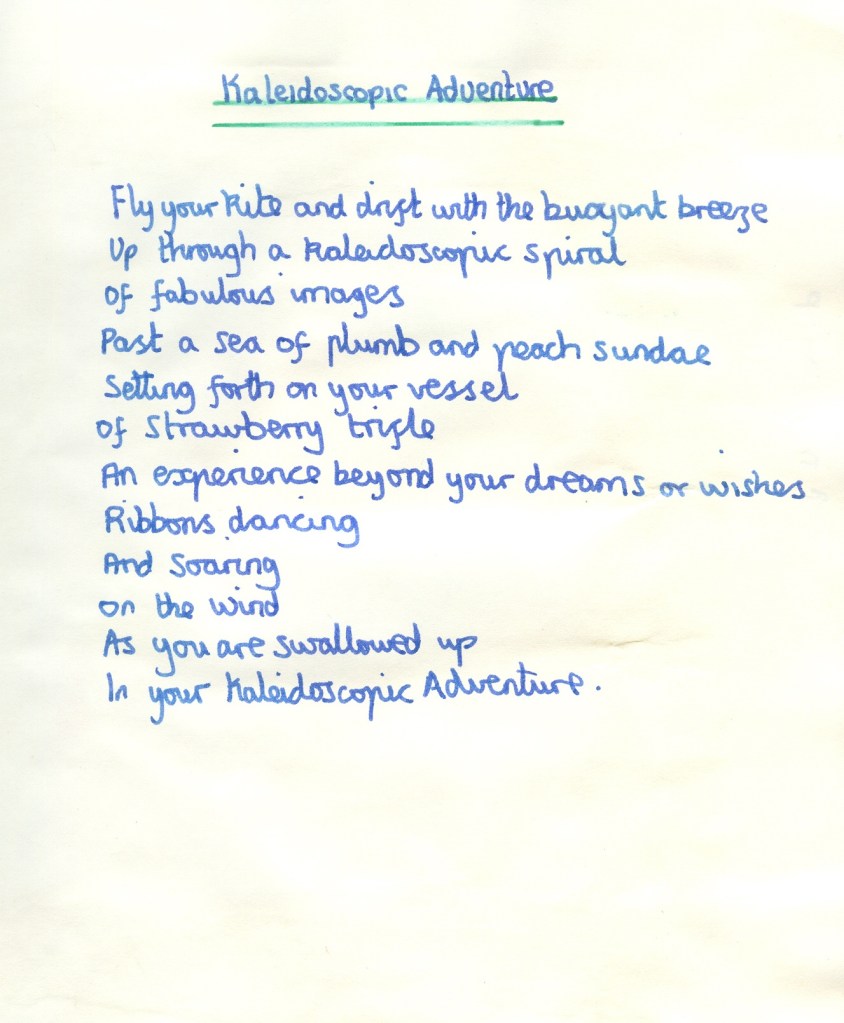 Kaleidoscopic Adventure
Fly your kite and drift with the buoyant breeze
Up through a kaleidoscopic spiral
of fabulous images
Past a sea of plumb and peach sundae
Setting forth on your vessel
of Strawberry trifle
An experience beyond your dreams or wishes
Ribbons dancing
And Soaring
on the wind
As you are swallowed up
In your Kaleidoscopic Adventure.